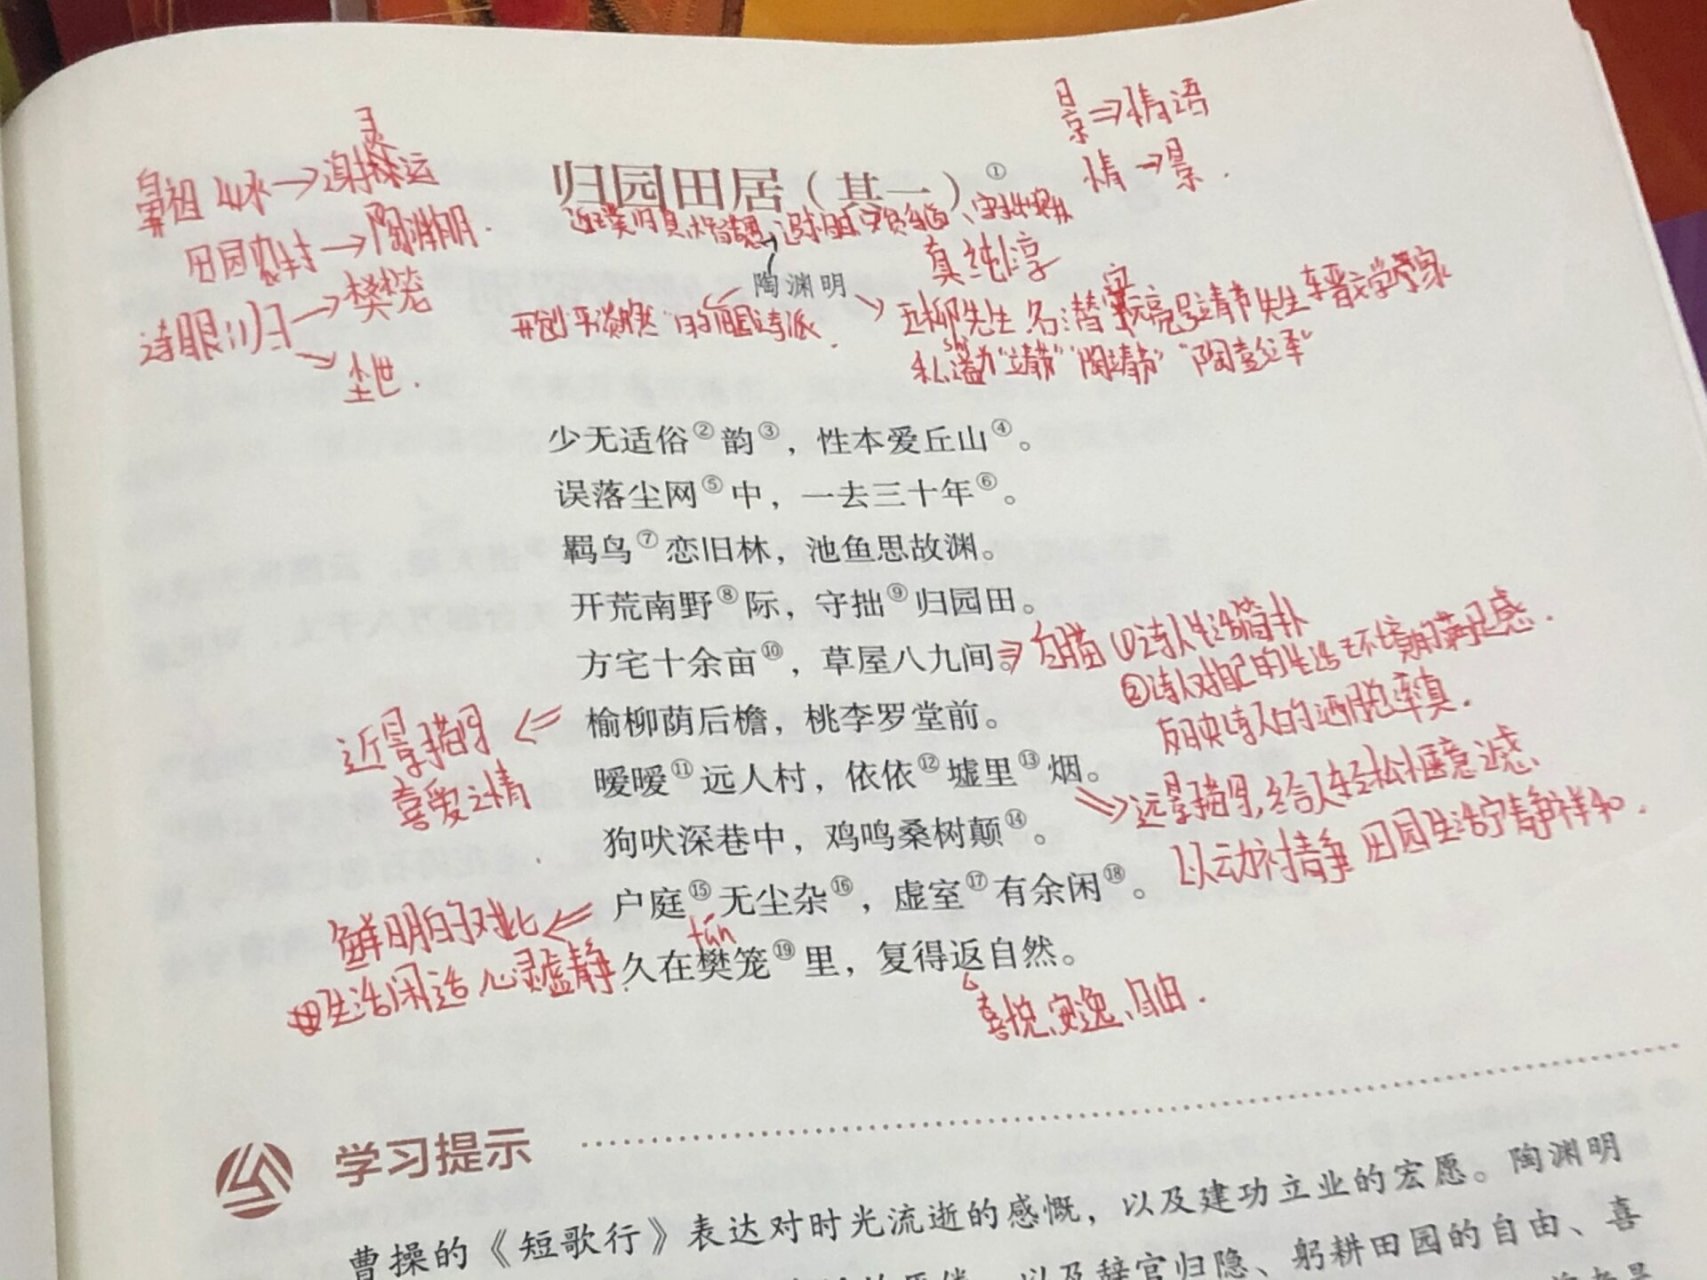 景⇒情语
情→景.
鼻祖 山水→谢灵运
田园农村→陶渊明.
诗眼:归→樊笼
→尘世.
归园田居（其一）①
真 纯 淳
陶渊明
开创"平淡自然"的田园诗派.
五柳先生 名:潜 字元亮 号靖节先生 东晋文学家
shì
私谥为"靖节" "陶靖节" "陶彭泽"
少无适俗②韵③，性本爱丘山④。
误落尘网⑤中，一去三十年⑥。
羁鸟⑦恋旧林，池鱼思故渊。
开荒南野⑧际，守拙⑨归园田。
方宅十余亩⑩，草屋八九间。
⇒白描 ①诗人生活简朴
②诗人对自己的生活环境的满足感.
反映诗人的洒脱率真.
榆柳荫后檐，桃李罗堂前。
近景描写
喜爱之情
暧暧⑪远人村，依依⑫墟里⑬烟。
⇒远景描写,给人轻松惬意之感、
狗吠深巷中，鸡鸣桑树颠⑭。
以动衬静 田园生活宁静祥和.
户庭⑮无尘杂⑯，虚室⑰有余闲⑱。
鲜明的对比
fán
久在樊笼⑲里，复得返自然。
生活闲适 心灵虚静.
喜悦、安逸、自由.
学习提示
曹操的《短歌行》表达对时光流逝的感慨，以及建功立业的宏愿。陶渊明
以及辞官归隐、躬耕田园的自由、喜